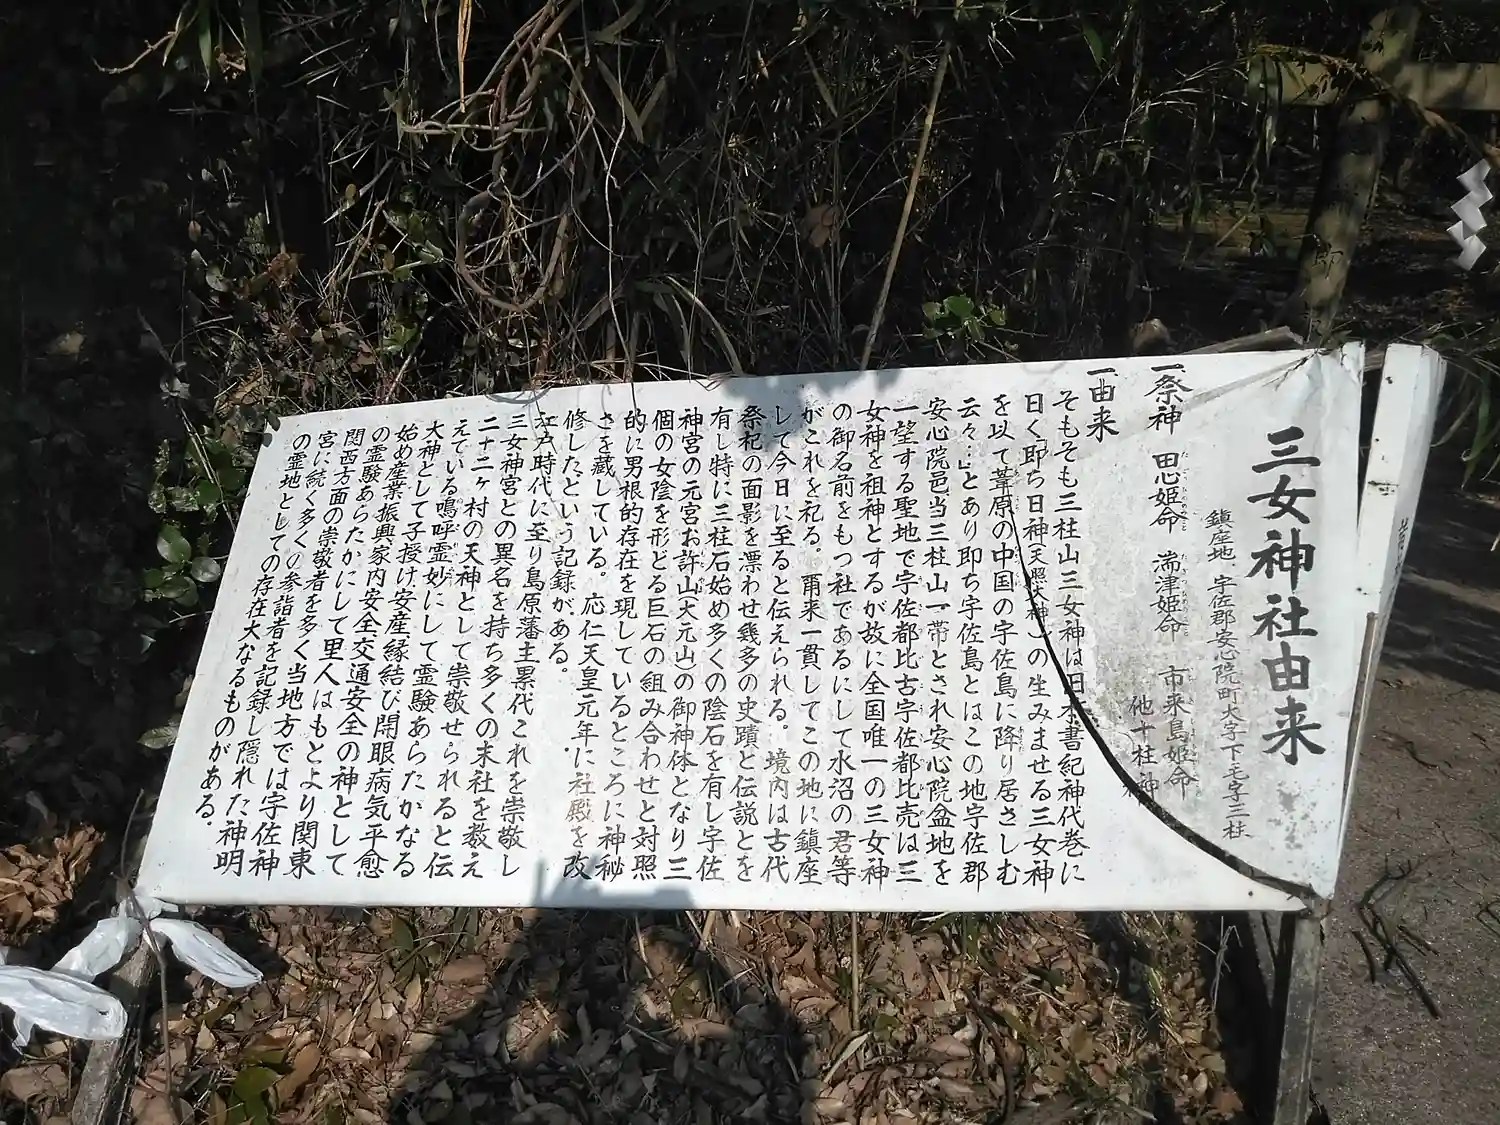 三女神社由来
鎮座地、宇佐郡安心院町大字下毛字三柱
一祭神 田心姫命 湍津姫命 市来島姫命
他十柱神
一由来
そもそも三柱山三女神は日本書紀神代巻に
曰く「即ち日神(天照大神)の生みませる三女神
を以て葦原の中国の宇佐島に降り居さしむ
云々…」とあり即ち宇佐島とはこの地宇佐郡
安心院邑当三柱山一帯とされ安心院盆地を
一望する聖地で宇佐都比古宇佐都比売は三
女神を祖神とするが故に全国唯一の三女神
の御名前をもつ社であるにして水沼の君等
がこれを祀る。爾来一貫してこの地に鎮座
して今日に至ると伝えられる。境内は古代
祭祀の面影を漂わせ幾多の史蹟と伝説とを
有し特に三柱石始め多くの陰石を有し宇佐
神宮の元宮お許山(大元山)の御神体となり三
個の女陰を形どる巨石の組み合わせと対照
的に男根的存在を現しているところに神秘
さを蔵している。応仁天皇元年に社殿を改
修したという記録がある。
江戸時代に至り島原藩主累代これを崇敬し
三女神宮との異名を持ち多くの末社を数え
二十二ヶ村の天神として崇敬せられると伝
えている鳴呼霊妙にして霊験あらたかなる
大神として子授け、安産縁結び開眼病気平愈
始め産業振興家内安全交通安全の神として
の霊験あらたかにして里人はもとより関東
関西方面の崇敬者を多く当地方では宇佐神
宮に続く多くの参詣者を記録し隠れた神明
の霊地としての存在大なるものがある。